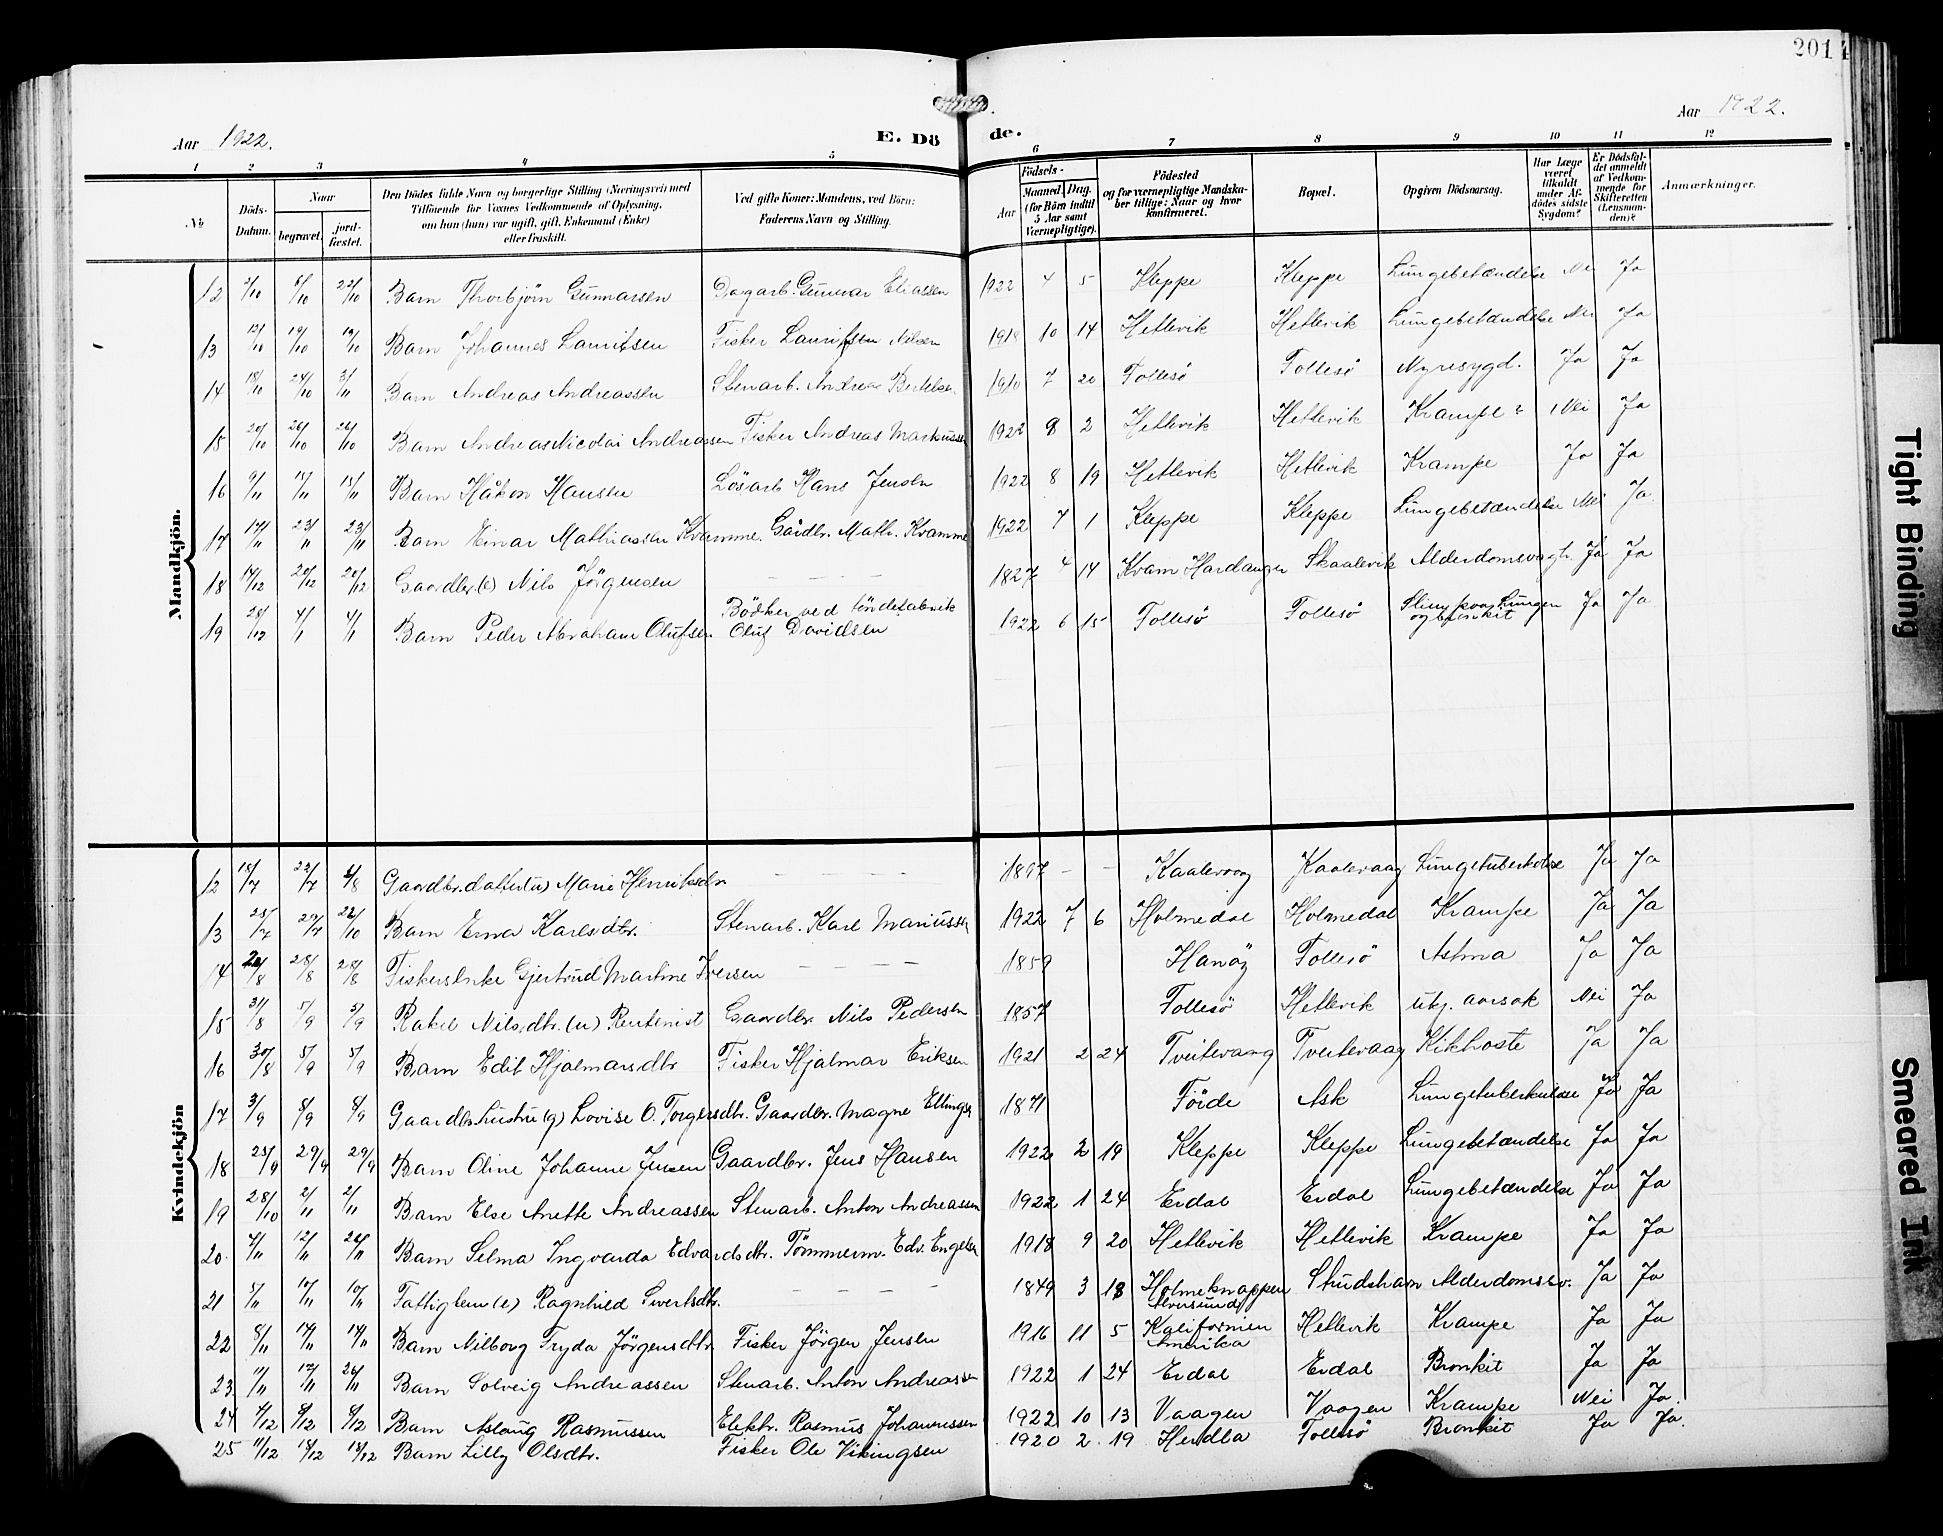 201
Aar 1922.
E. Dö de.
Aar 1922.
1 2 3 4 5 6 7 8 9 10 11 12
No
Döds-Datum.
Naar
begravet.
jord-fæstet.
Den Dödes fulde Navn og borgerlige Stilling (Næringsvei) med
Tilföiende for Voxnes Vedkommende af Oplysning,
om han (hun) var ugift, gift, Enkemand (Enke)
eller fraskilt.
Ved gifte Koner: Mandens, ved Börn:
Faderens Navn og Stilling.
Födsels-
Aar
Maaned. Dag.
(for Börn indtil
5 Aar samt
Værnepligtige).
Födested
og for værnepligtige Mandska-
ber tillige: Naar og hvor
konfirmeret.
Bopæl.
Opgiven Dödsaarsag.
Har Læge
været
tilkaldt
under Af-
dödes sidste
Sygdom?
Er Dödsfal-
det anmeldt
af Vedkom-
mende for
Skifteretten
(Lensman-
den)?
Anmærkninger.
Mandkjön.
12 3/10 6/10 22/10 Barn Thorbjörn Gunnarsen Dagarb. Gunnar Eliassen 1922 4 5 Kleppe Kleppe Lungebetændelse Nei Ja
13 13/10 19/10 19/10 Barn Johannes Lauritsen Fisker Lauritsen Nilsen 1918 10 14 Hetlevik Hetlevik Lungebetændelse Nei Ja
14 18/10 24/10 3/11 Barn Andreas Andreassen Stenarb. Andreas Bertelsen 1910 7 20 Follesö Follesö Nyresygd. Ja Ja
15 20/10 26/10 26/10 Barn Andreas Nicolai Andreassen Fisker Andreas Markussen 1922 8 2 Hetlevik Hetlevik Krampe ? Nei Ja
16 9/11 15/11 Barn Håkon Hansen Lösarb Hans Jensen 1922 8 19 Hetlevik Hetlevik Krampe Ja Ja
17 17/11 23/11 23/11 Barn Einar Mathiassen Kvamme. Gårdbr. Math. Kvamme 1922 7 1 Kleppe Kleppe Lungebetændelse Nei Ja
18 14/12 20/12 20/12 Gaardbr. (e) Nils Jörgensen — — — 1827 4 14 Kvam Hardanger Skaalevik Alderdomsvagh. Ja Ja
19 28/12 4/1 4/1 Barn Peder Abraham Olufsen Bödker ved töndefabrik Oluf Davidsen 1922 6 15 Follesö Follesö Slim paa Lungen og bronkit Ja Ja
Kvindekjön
12 18/7 22/7 6/8 Gaardbr.datter (u) Marie Henriksdtr. — — — — 1897 — — Kaalevaag Kaalevaag Lungetuberkulose Ja Ja
13 25/7 29/7 22/10 Barn Erna Karlsdtr. Stenarb. Karl Mariussen 1922 7 6 Holmedal Holmedal Krampe Ja Ja
14 22/8 28/8 28/8 Fiskersenke Gjertrud Martine Iversen — — — — 1859 Hanöy Follesö Astma Ja Ja
15 31/8 5/9 5/9 Rakel Nilsdtr. (u) Rentenist Gaardbr. Nils Pedersen 1857 Follesö Hetlevik ukj. aarsak Nei Ja
16 30/8 5/9 5/9 Barn Edit Hjalmarsdtr Fisker Hjalmar Eriksen 1921 2 24 Tveitevaag Tveitevaag Kikhoste Ja Ja
17 3/9 8/9 8/9 Gaardbr.hustru (g) Lovise O. Torgersdtr. Gaardbr. Magne Ellingsen 1871 Förde Ask Lungetuberkulose Ja Ja
18 23/9 29/9 29/9 Barn Oline Johanne Jensen Gaardbr. Jens Hansen 1922 2 19 Kleppe Kleppe Lungebetændelse Ja Ja
19 28/10 2/11 2/11 Barn Else Anette Andreassen Stenarb. Anton Andreassen 1922 1 24 Erdal Erdal Lungebetændelse Ja Ja
20. 7/11 12/11 26/11 Barn Selma Ingvarda Edvardsdtr. Tömmerm. Edv. Engelsen 1918 9 20 Hetlevik Hetlevik Krampe Ja Ja
21 5/11 10/11 10/11 Fattiglem (e) Ragnhild Sivertsdtr. — — — — 1849 3 18 Holmeknappen Alversund Skudshavn Alderdomssv. Ja Ja
22 8/11 14/11 14/11 Barn Nilborg Fryda Jörgensdtr. Fisker Jörgen Jensen 1916 11 5 Kalifornien Amerika Hetlevik Krampe Ja Ja
23 11/11 17/11 26/11 Barn Solveig Andreassen Stenarb. Anton Andreassen 1922 1 24 Erdal Erdal Bronkit Ja Ja
24 4/12 8/12 8/12 Barn Aslaug Rasmussen Elektr. Rasmus Johannessen 1922 10 13 Vaagen Vaagen Krampe Nei Ja
25 11/12 18/12 18/12 Barn Lilly Olsdtr. Fisker Ole Vikingsen 1920 2 19 Herdla Follesö Bronkit Ja Ja.
Tight Binding
Smeared Ink